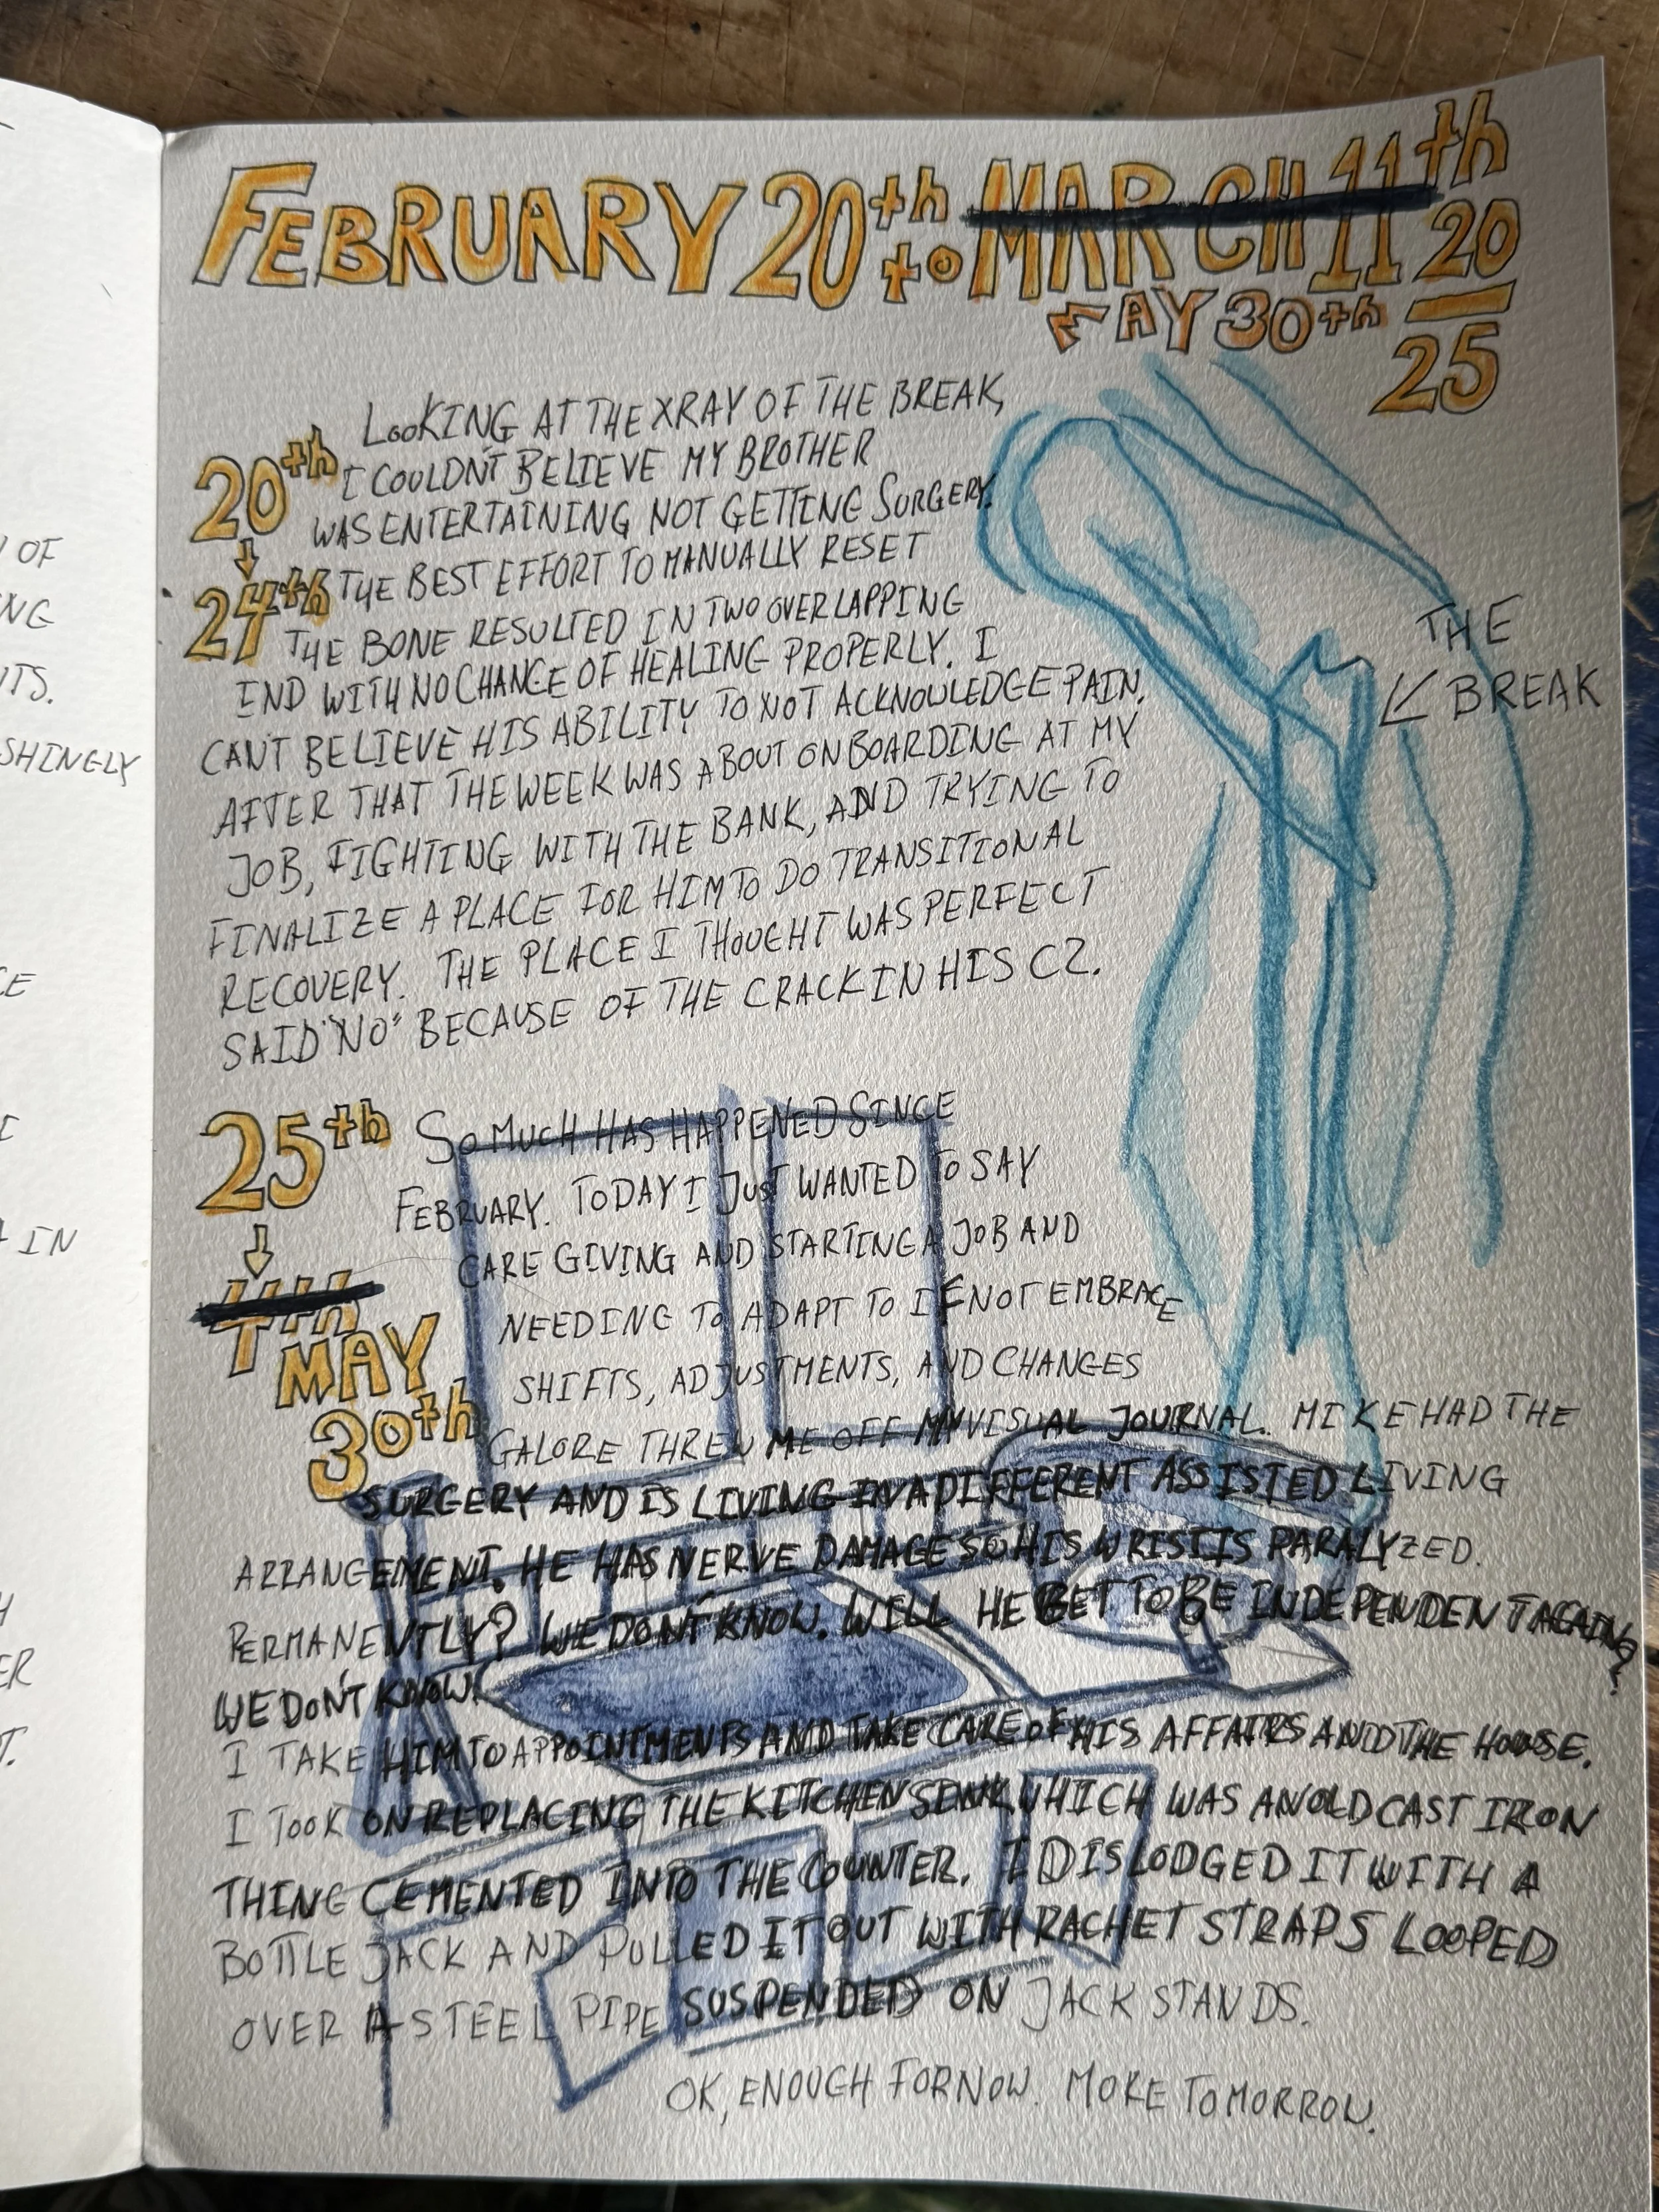 FEBRUARY 20th to MARCH 11th 20
MAY 30th 25
20th
↓
24th
LOOKING AT THE XRAY OF THE BREAK,
I COULDN'T BELIEVE MY BROTHER
WAS ENTERTAINING NOT GETTING SURGERY.
THE BEST EFFORT TO MANUALLY RESET
THE BONE RESULTED IN TWO OVERLAPPING
END WITH NO CHANCE OF HEALING PROPERLY. I
CAN'T BELIEVE HIS ABILITY TO NOT ACKNOWLEDGE PAIN.
AFTER THAT THE WEEK WAS ABOUT ONBOARDING AT MY
JOB, FIGHTING WITH THE BANK, AND TRYING TO
FINALIZE A PLACE FOR HIM TO DO TRANSITIONAL
RECOVERY. THE PLACE I THOUGHT WAS PERFECT
SAID "NO" BECAUSE OF THE CRACK IN HIS C2.
THE
BREAK
25th
↓
MAY
30th
SO MUCH HAS HAPPENED SINCE
FEBRUARY. TODAY I JUST WANTED TO SAY
CARE GIVING AND STARTING A JOB AND
NEEDING TO ADAPT TO IF NOT EMBRACE
SHIFTS, ADJUSTMENTS, AND CHANGES
GALORE THREW ME OFF MY VISUAL JOURNAL. MIKE HAD THE
SURGERY AND IS LIVING IN A DIFFERENT ASSISTED LIVING
ARRANGEMENT. HE HAS NERVE DAMAGE SO HIS WRIST IS PARALYZED.
PERMANENTLY? WE DON'T KNOW. WILL HE GET TO BE INDEPENDENT AGAIN?
WE DON'T KNOW.
I TAKE HIM TO APPOINTMENTS AND TAKE CARE OF HIS AFFAIRS AND THE HOUSE.
I TOOK ON REPLACING THE KITCHEN SINK WHICH WAS AN OLD CAST IRON
THING CEMENTED INTO THE COUNTER. I DISLODGED IT WITH A
BOTTLE JACK AND PULLED IT OUT WITH RACHET STRAPS LOOPED
OVER A STEEL PIPE SUSPENDED ON JACK STANDS.
OK, ENOUGH FOR NOW. MORE TOMORROW.
OF
NG
TS.
SHINGLY
CE
IN
H
ER
T.